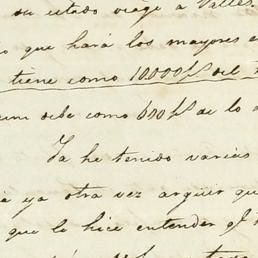 su estado viage a Valles
que hará los mayores
tiene como 10.000 p.s del
debe como 600 p.s de lo
Ya he tenido varias
ya otra vez arguir qu
que lo hice entender